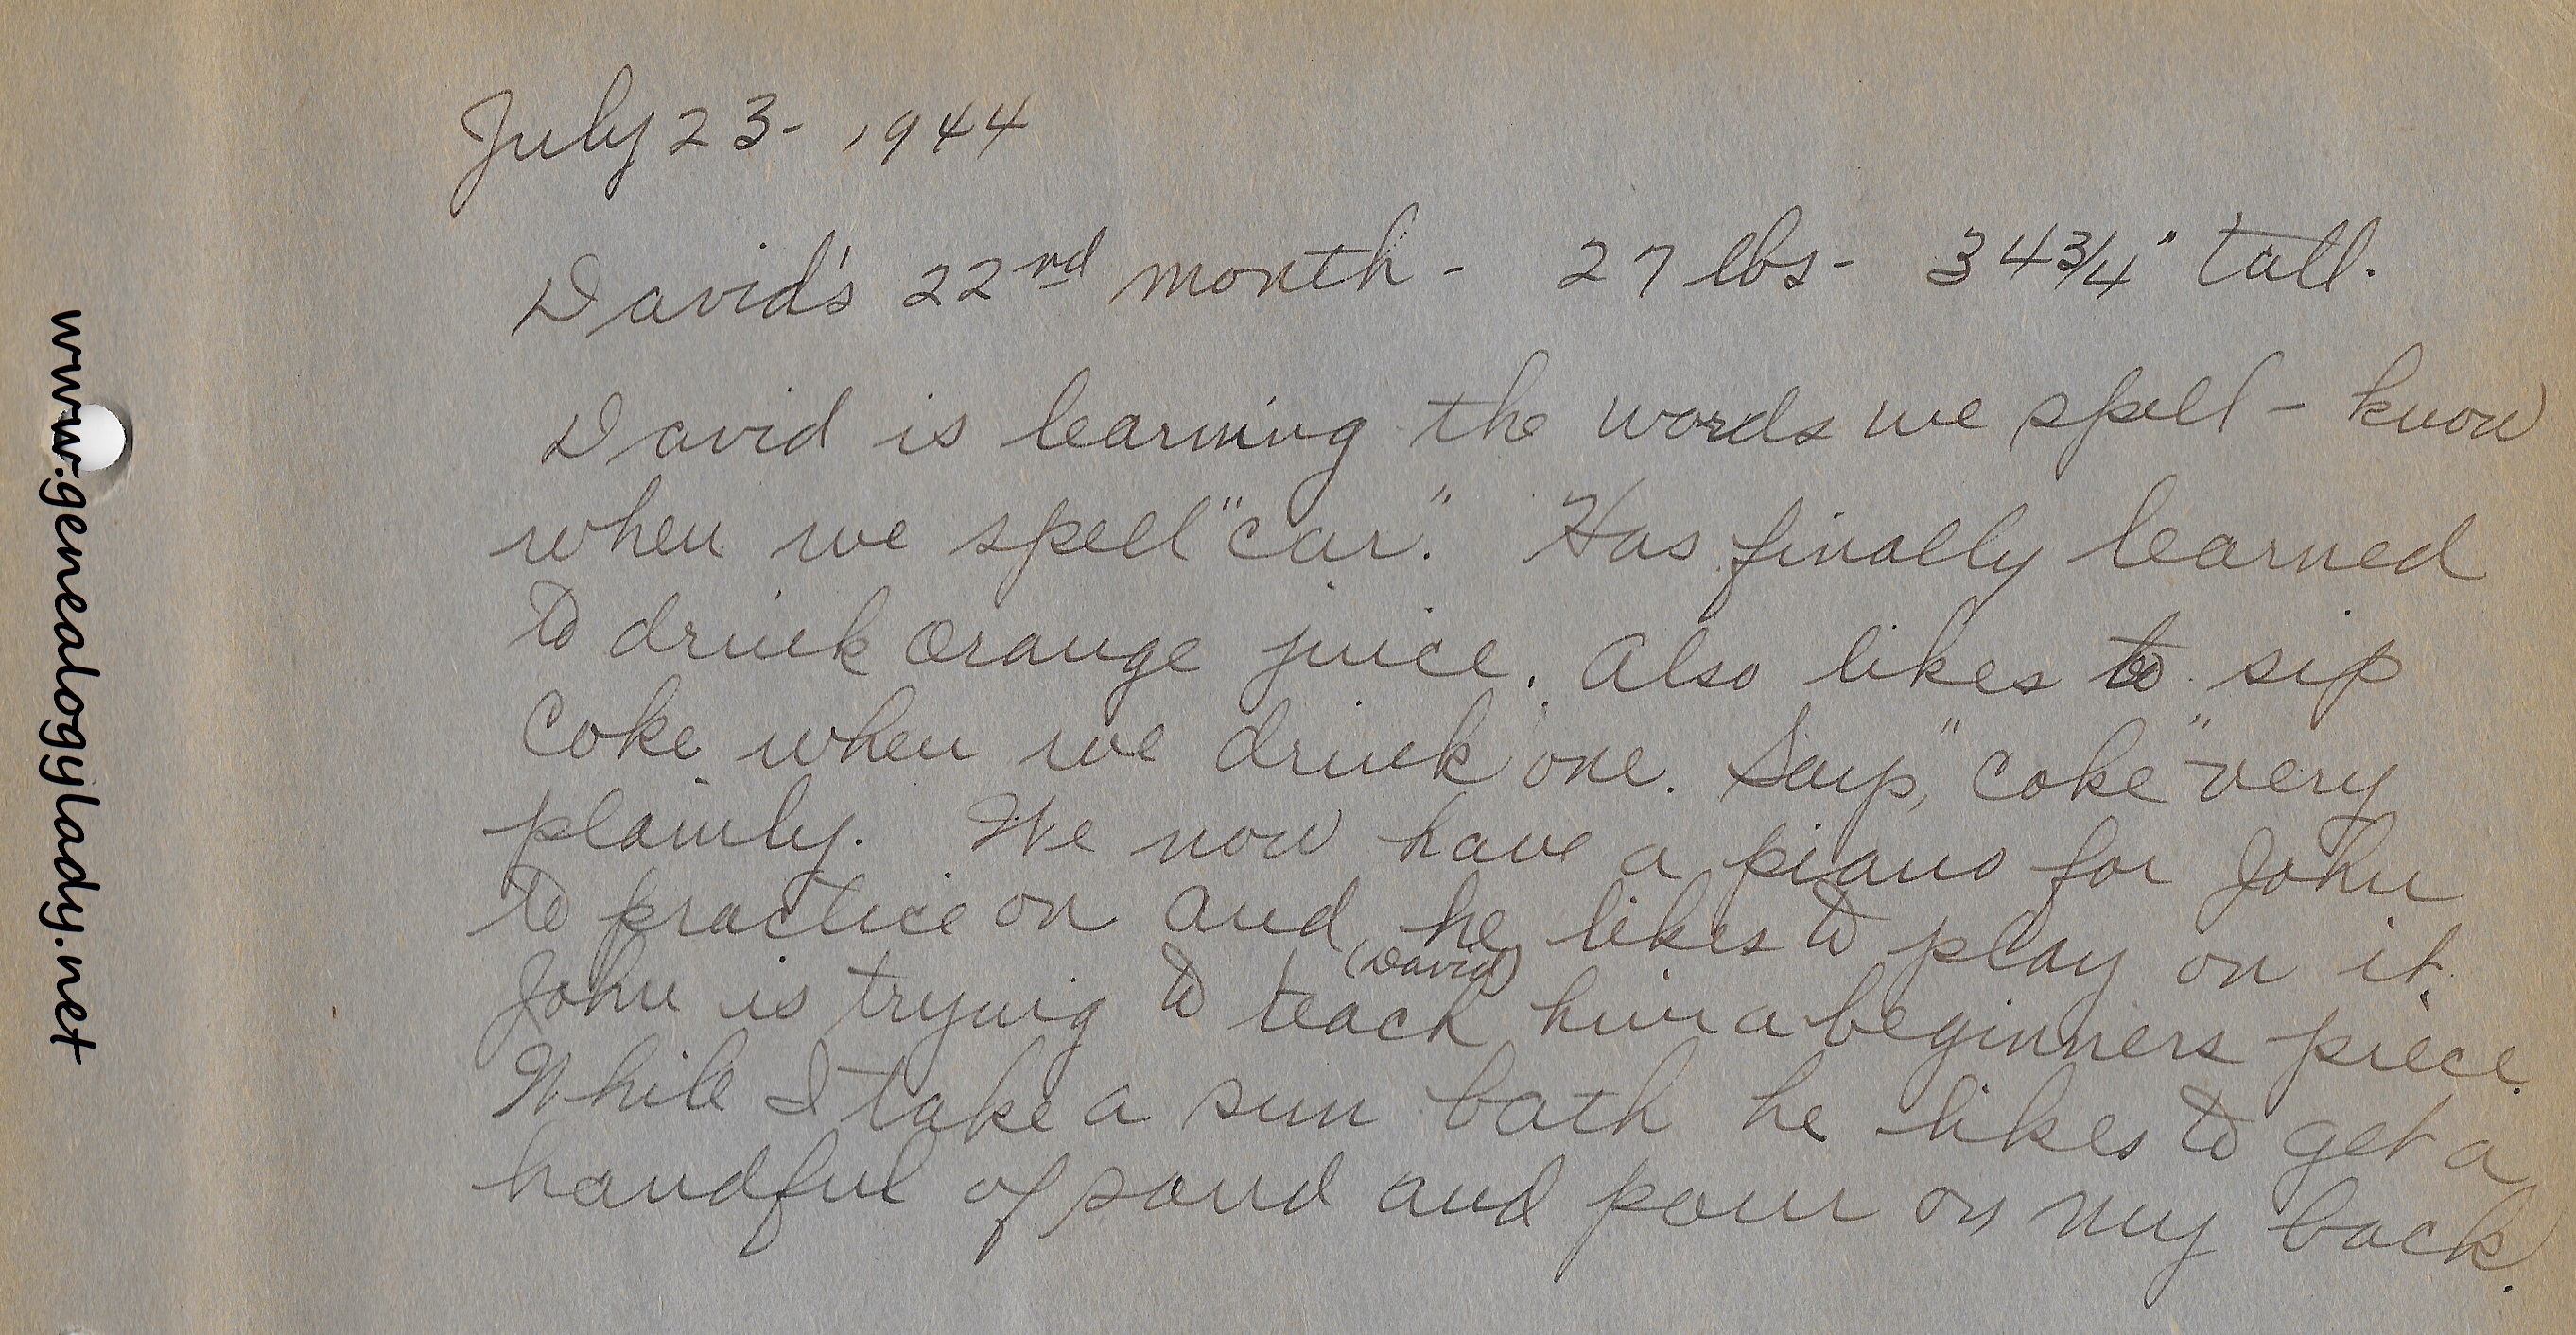 July 23- 1944
David's 22nd month - 27 lbs - 34 3/4" tall.
David is learning the words we spell - know
when we spell "car." Has finally learned
to drink orange juice. Also likes to sip
Coke when we drink one. Says, "Coke" very
plainly. We now have a piano for John
to practice on and he likes to play on it.
(David)
John is trying to teach him a beginners piece.
While I take a sun bath he likes to get a
handful of sand and pour on my back.
www.genealogylady.net